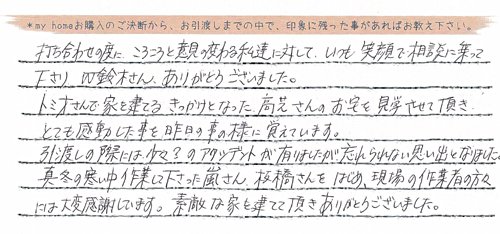 *my homeお購入のご決断から、お引渡しまでの中で、印象に残った事があればお教え下さい。
打ち合わせの度に、ころころと意見の変わる私達に対して、いつも笑顔で相談に乗って
下さり 鈴木さん、ありがとうございました。
トミオさんで家を建てる きっかけとなった、高芝さんのお宅を見学させて頂き
とても感動した事を昨日の事の様に覚えています。
引渡しの際には少々?のアクシデントが有りましたが忘れられない思い出となりました。
真冬の寒い中作業して下さった嵐さん、板橋さんをはじめ、現場の作業者の方々
には大変感謝しています。素敵な家を建てて頂きありがとうございました。